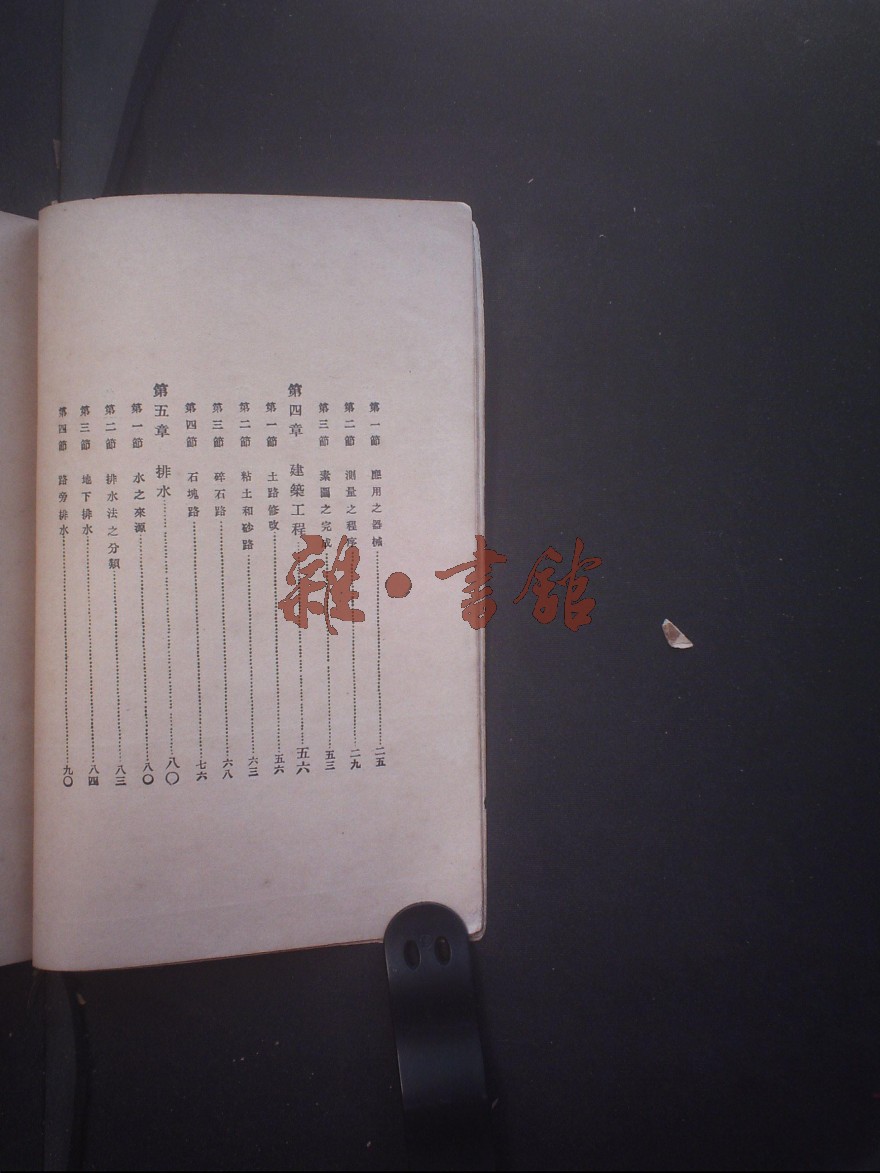 第一節 應用之器械 二五
第二節 測量之程序 二九
第三節 素圖之完成 五三
第四章 建築工程 五六
第一節 土路修改 五六
第二節 粘土和砂路 六三
第三節 碎石路 六八
第四節 石塊路 七六
第五章 排水 八〇
第一節 水之來源 八〇
第二節 排水法之分類 八三
第三節 地下排水 八四
第四節 路旁排水 九〇
雜·書館